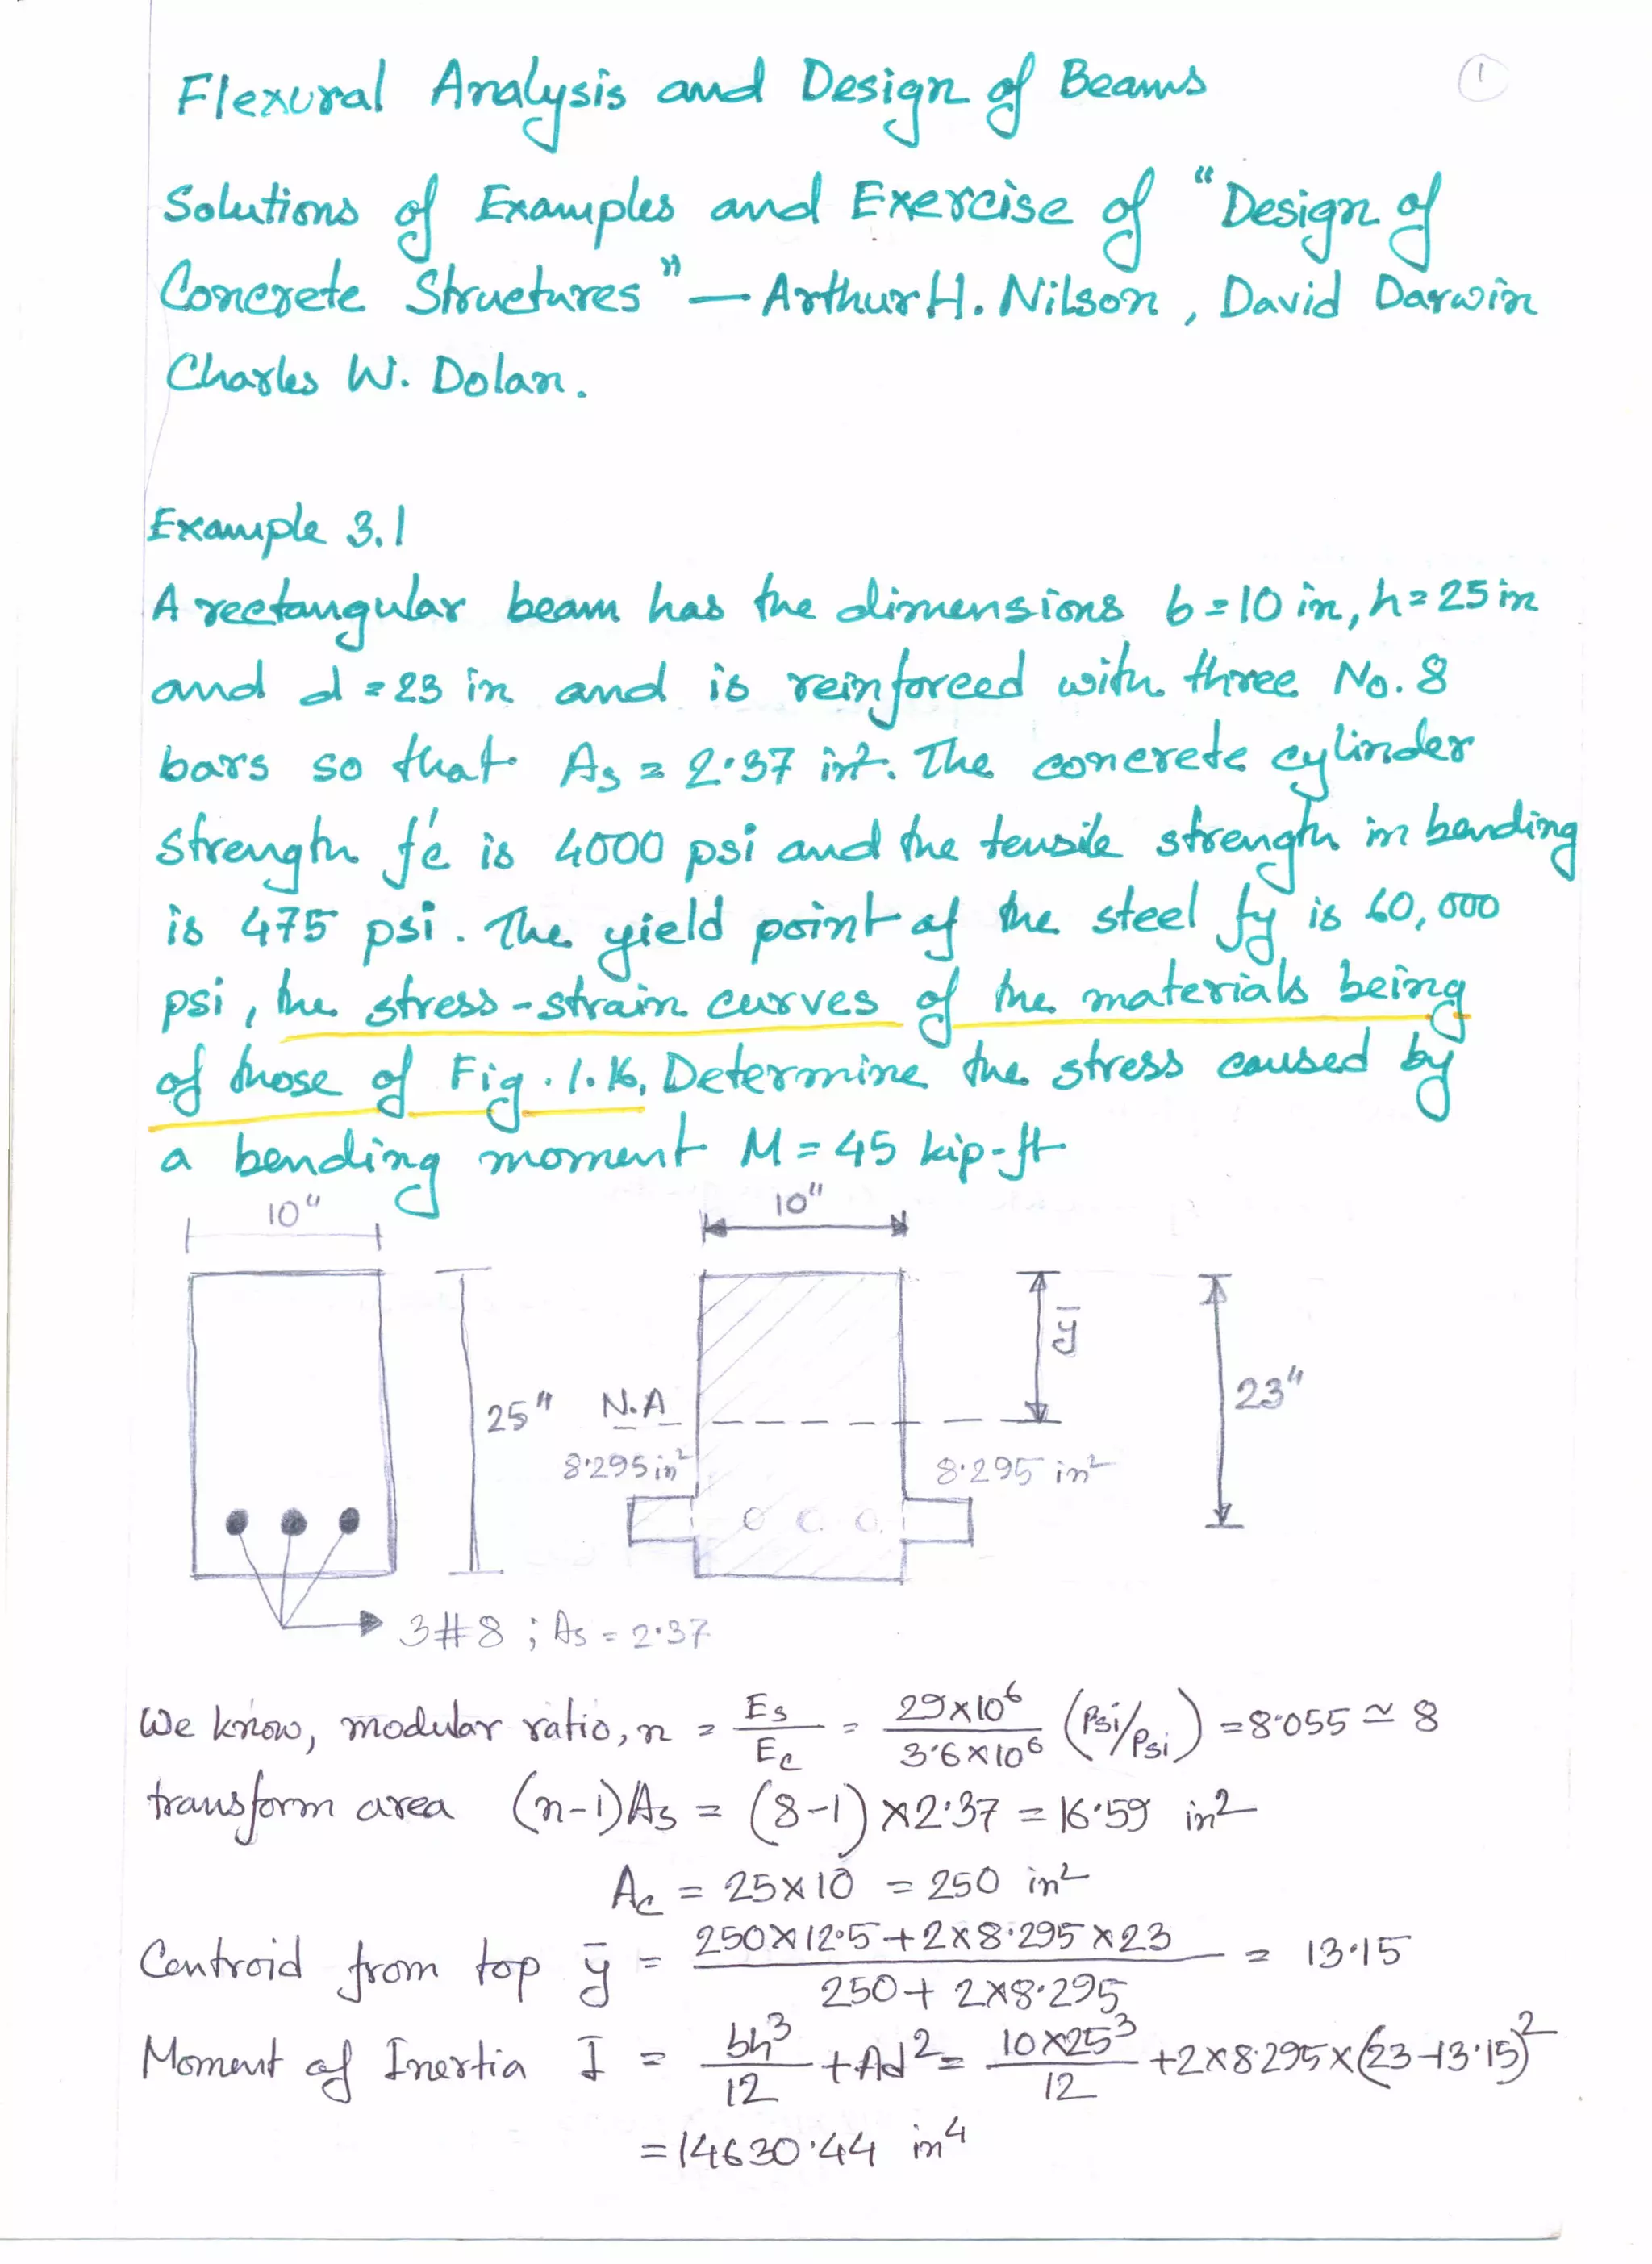 1
Flexural Analysis and Design of Beams
Solutions of Examples and Exercise of "Design of
Concrete Structures" — Arthur H. Nilson, David Darwin
Charles W. Dolan.
Example 3.1
A rectangular beam has the dimensions b = 10 in, h = 25 in
and d = 23 in and is reinforced with three No. 8
bars so that As = 2.37 in². The concrete cylinder
strength f'c is 4000 psi and the tensile strength in bending
is 475 psi. The yield point of the steel fy is 60,000
psi, the stress-strain curves of the materials being
of those of Fig. 1.16. Determine the stress caused by
a bending moment M = 45 kip-ft
10" 10"
ȳ
25" N.A 23"
8.295 in² 8.295 in²
3#8 ; As = 2.37
We know, modular ratio, n = Es/Ec = 29×10⁶/3.6×10⁶ (Psi/Psi) = 8.055 ≃ 8
transform area (n-1)As = (8-1)×2.37 = 16.59 in²
Ac = 25×10 = 250 in²
Centroid from top ȳ = 250×12.5+2×8.295×23 / 250+2×8.295 = 13.15
Moment of Inertia I = bh³/12 + Ad² = 10×25³/12 + 2×8.295×(23-13.15)²
= 14630.44 in⁴